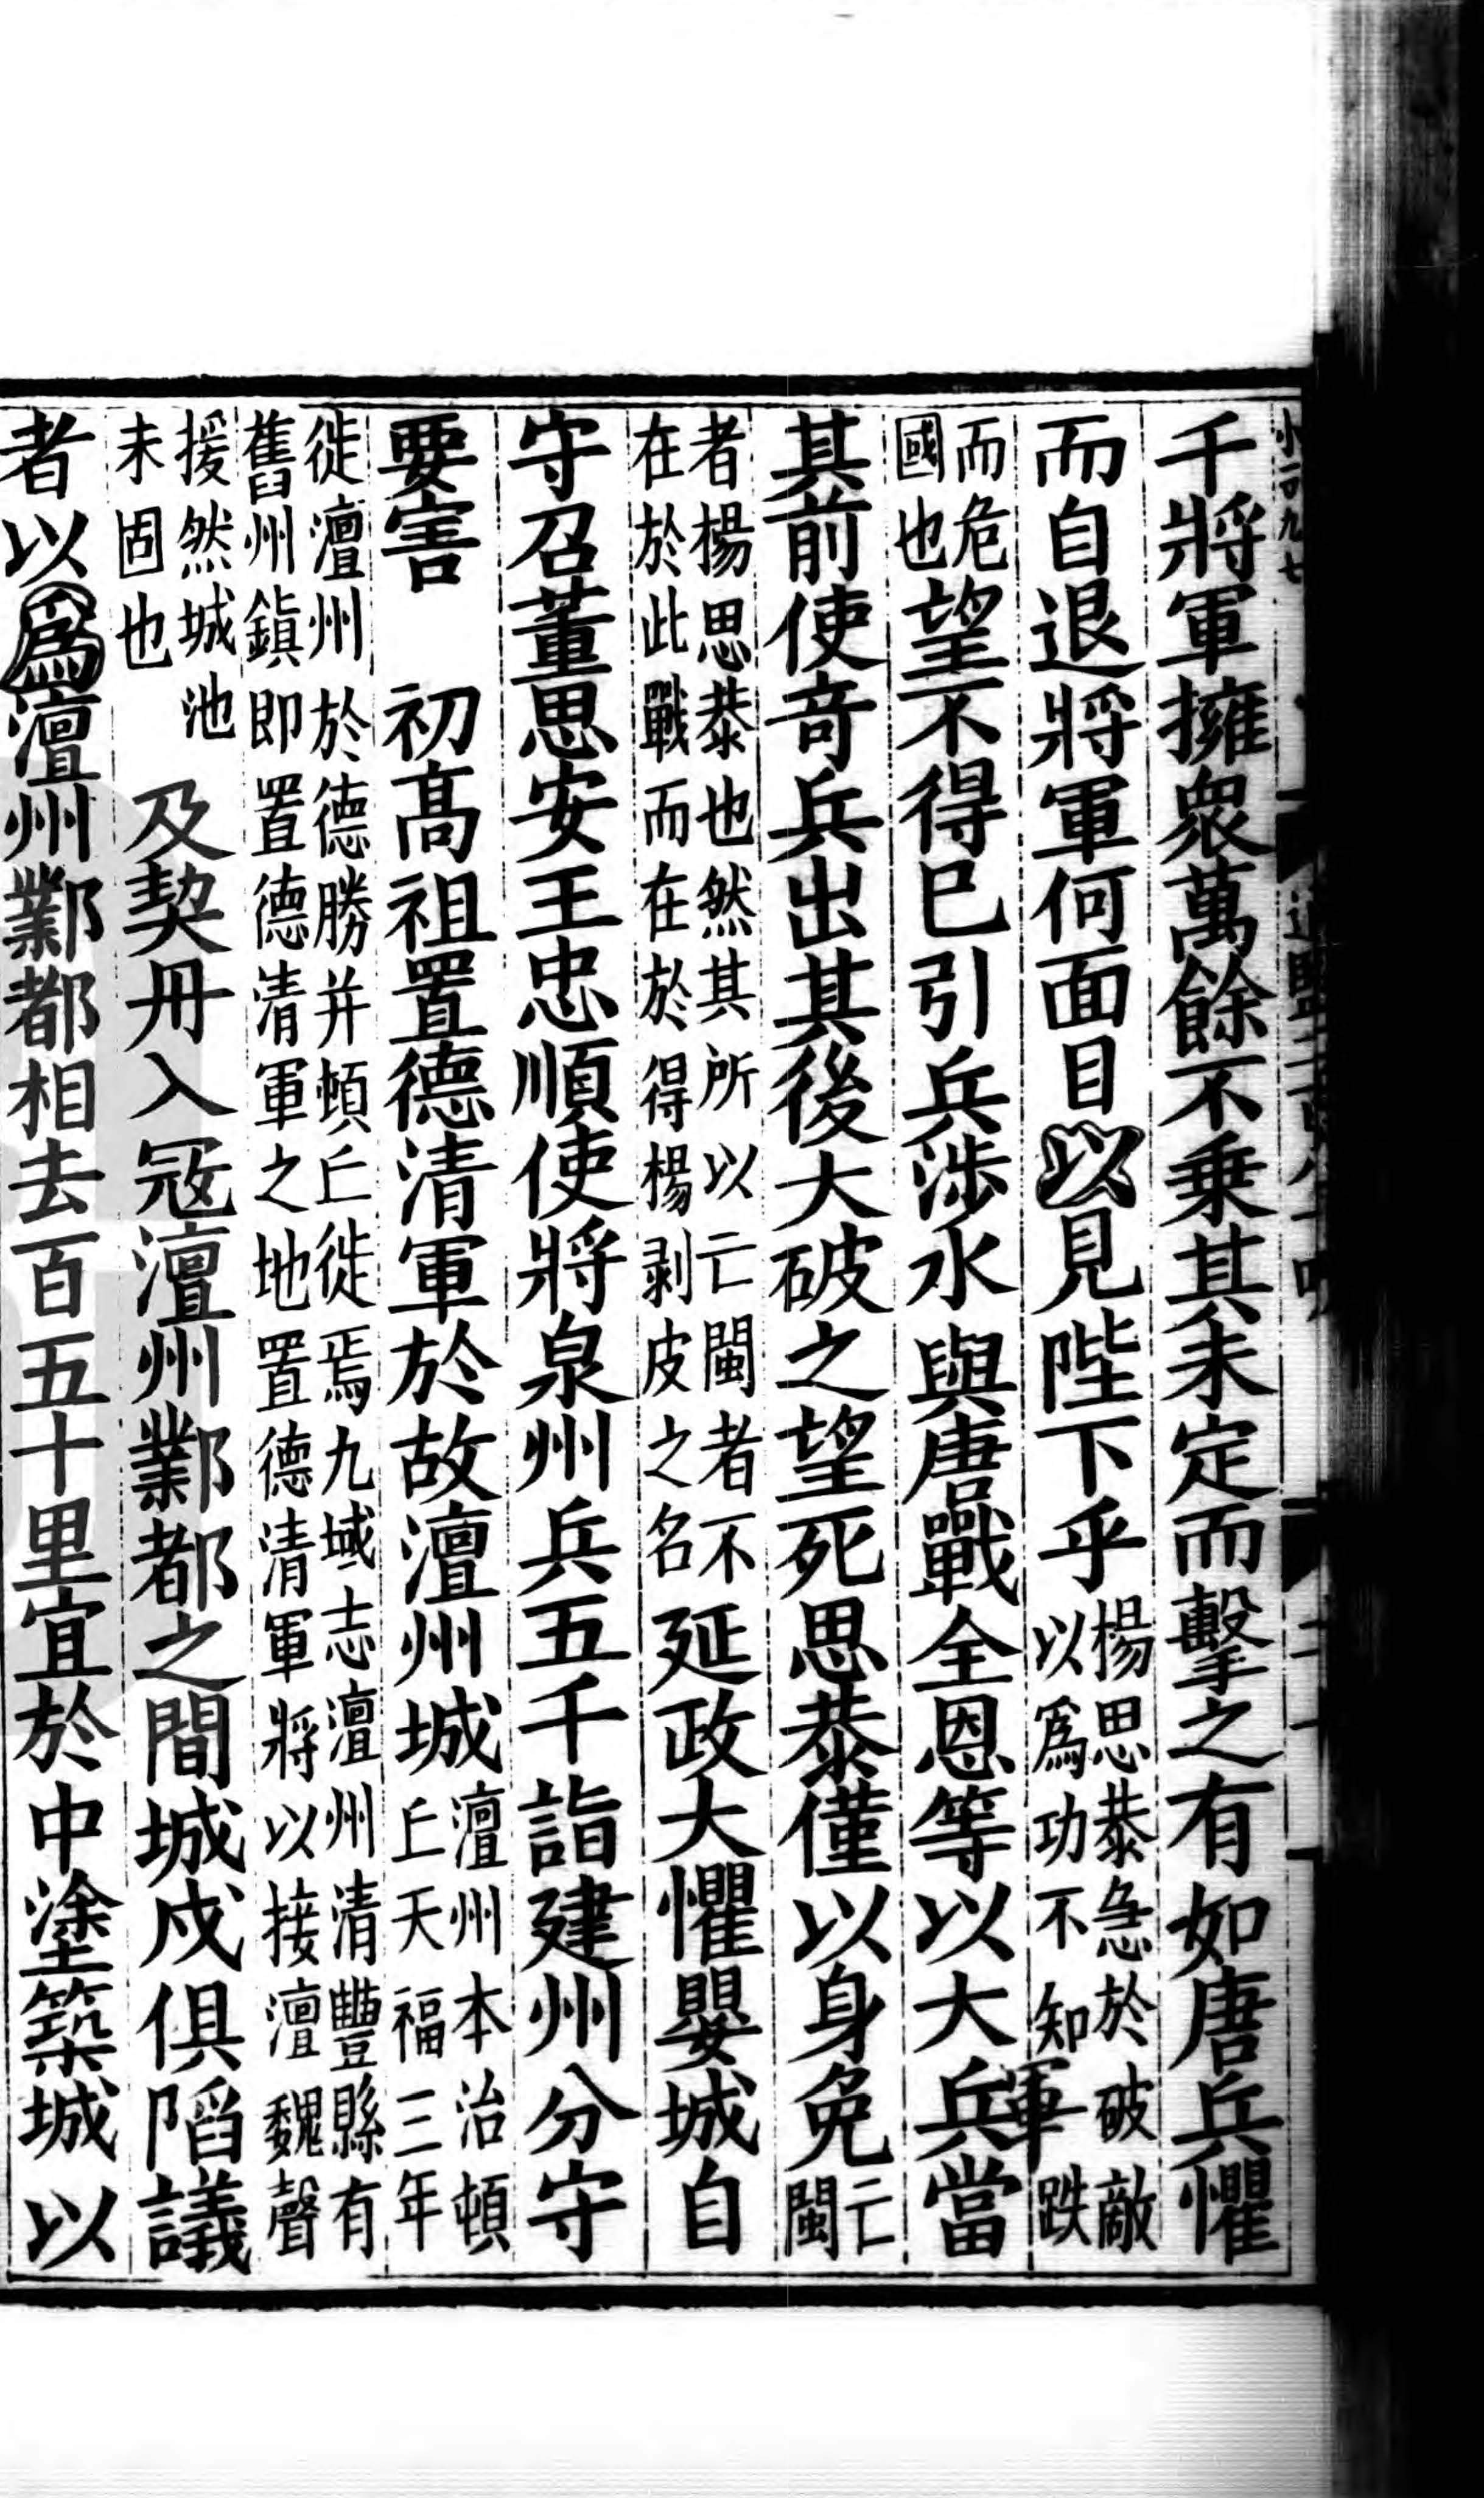 千將軍擁衆萬餘不乗其未定而擊之有如唐兵懼
而自退將軍何面目以見陛下乎楊思恭急於破敵以爲功不知跌
而危國也望不得巳引兵涉水與唐戰全恩等以大兵軍當
其前使奇兵出其後大破之望死思恭僅以身免亡閩
者楊思恭也然其所以亡閩者不在於此戰而在於得楊剥皮之名延政大懼嬰城自
守召董思安王忠順使將泉州兵五千詣建州分守
要害　初髙祖置德清軍於故澶州城澶州本治頓丘天福三年
徙澶州於德勝并頓丘徙焉九域志澶州清豐縣有舊州鎮即置德清軍之地置德清軍將以接澶魏聲
援然城池未固也及契丹入㓂澶州鄴都之間城戍俱陷議
者以爲澶州鄴都相去百五十里宜於中塗築城以